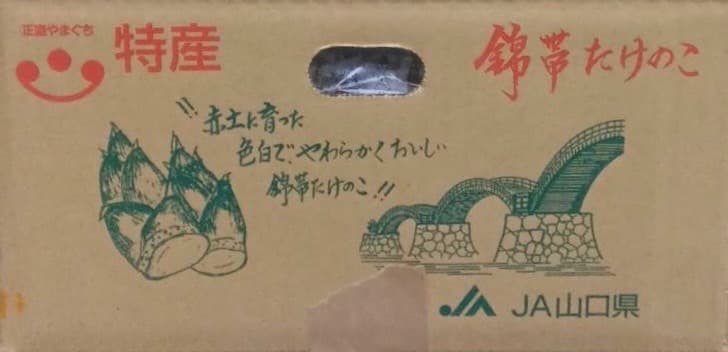 正直やまぐち
特産
錦帯たけのこ
赤土に育った
色白で、やわらかくおいしい
錦帯たけのこ!!
JA JA山口県